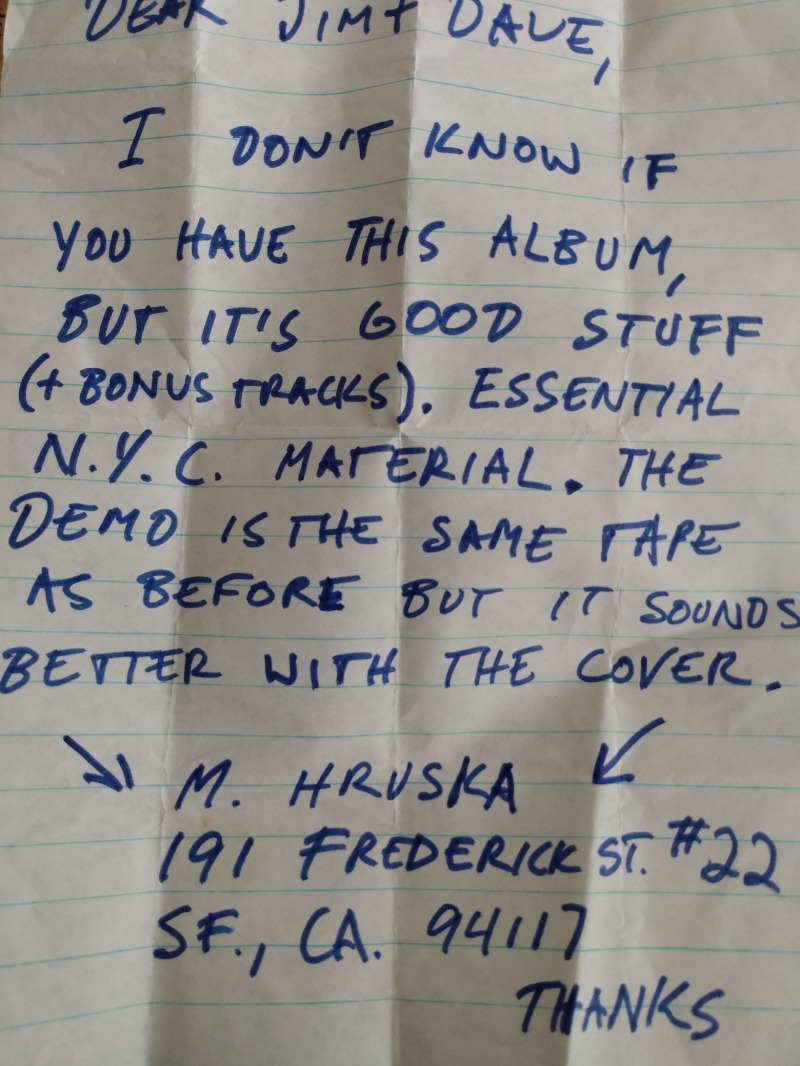 DEAR JIM + DAVE,
I DON'T KNOW IF
YOU HAVE THIS ALBUM,
BUT IT'S GOOD STUFF
(+ BONUS TRACKS). ESSENTIAL
N.Y.C. MATERIAL. THE
DEMO IS THE SAME TAPE
AS BEFORE BUT IT SOUNDS
BETTER WITH THE COVER.
M. HRUSKA
191 FREDERICK ST. #22
SF., CA. 94117
THANKS